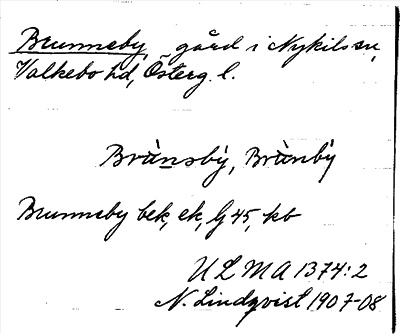 Brunneby, gård i Nykils sn,
Valkebo hd, Österg. l.
Brùnsby̆, Brùnby̆
Brunneby bek, ek, Gg 45, kb
ULMA 1374:2
N. Lindqvist 1907-08